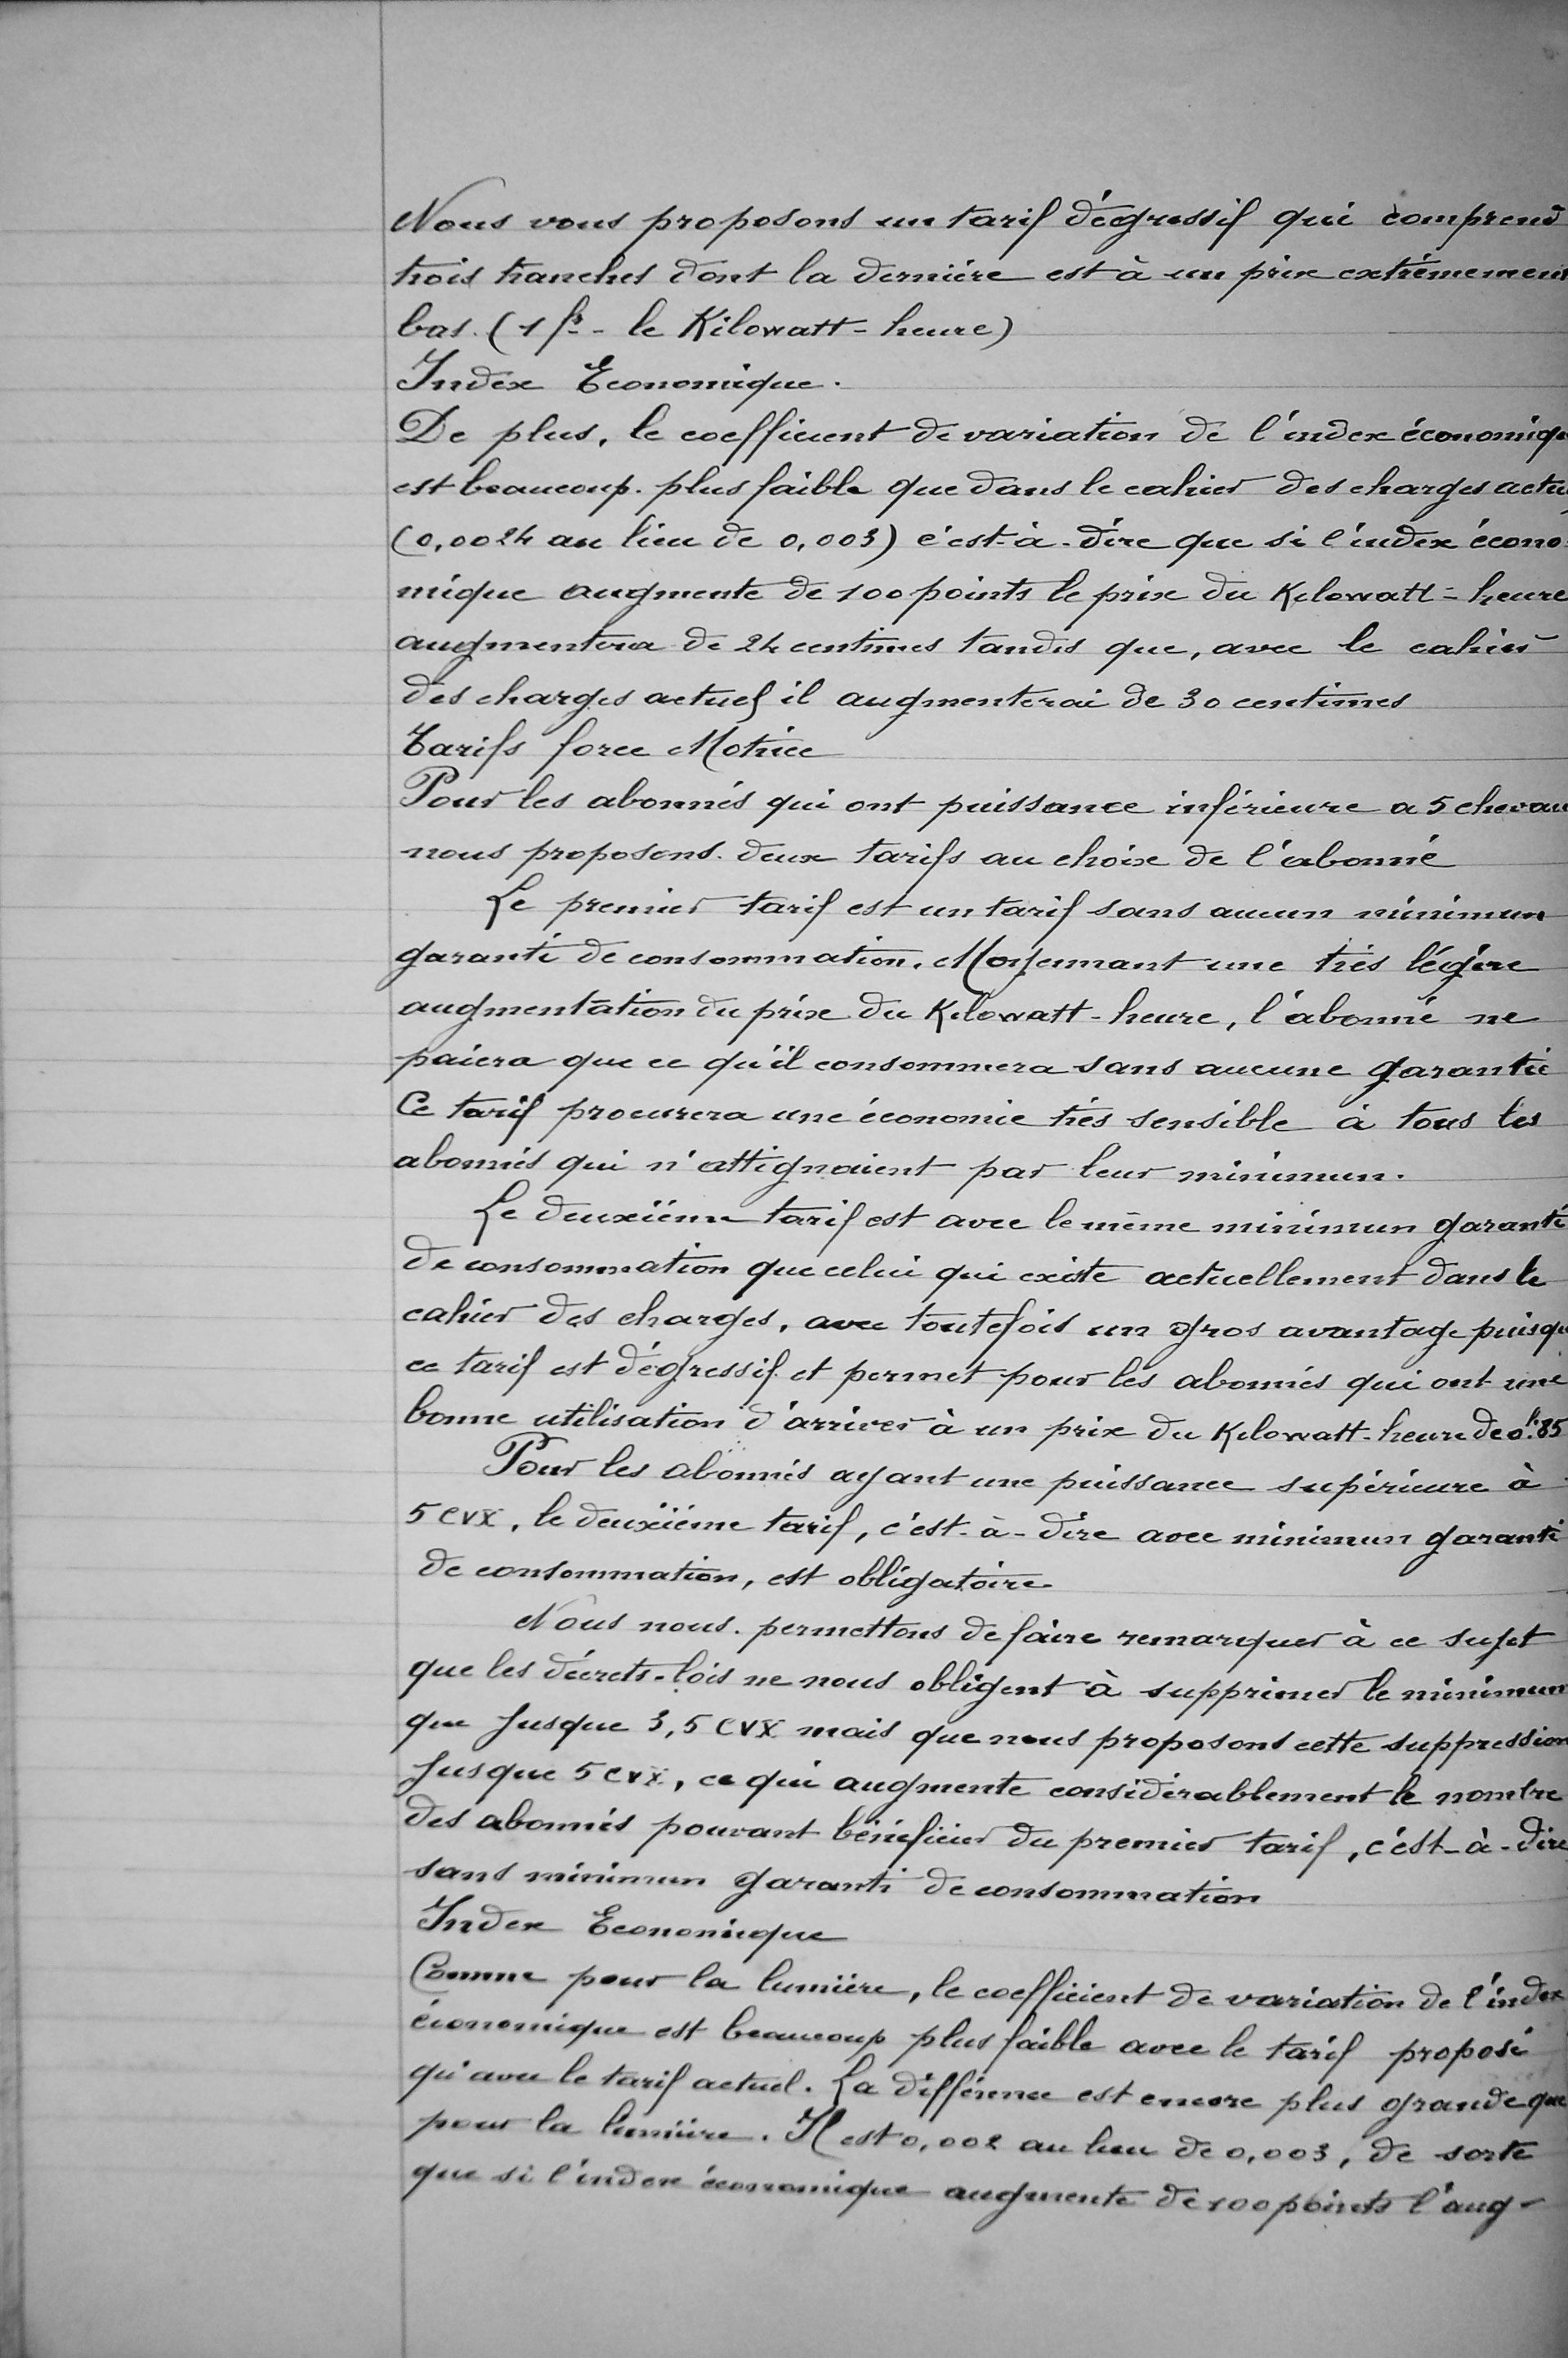 Nous vous proposons un tarif dégressif qui comprend
trois tranches dont la dernière est à un prix extrêmement
bas. (1 fr - le Kilowatt-heure)
Index Economique.
De plus, le coefficient de variation de l'index économique
est beaucoup. plus faible que dans le cahier des charges actuel
(0,0024 au lieu de 0,003) c'est-à-dire que si l'index écono-
mique augmente de 100 points le prix du Kilowatt-heure
augmentera de 24 centimes tandis que, avec le cahier
des charges actuel il augmenterai de 30 centimes
Tarifs force Motrice
Pour les abonnés qui ont puissance inférieure a 5 chevau
nous proposons. deux tarifs au choix de l'abonné
Le premier tarif est un tarif sans aucun minimun
garanti de consommation. Moyennant une très légère
augmentation du prix du Kilowatt-heure, l'abonné ne
paiera que ce qu'il consommera sans aucune garantie
Ce tarif procurera une économie très sensible à tous les
abonnés qui n'attignaient pas leur minimun.
Le deuxième tarif est avec le même minimun garanti
de consommation que celui qui existe actuellement dans le
cahier des charges, avec toutefois un gros avantage puisqu
ce tarif est dégressif et permet pour les abonnés qui ont une
bonne utilisation d'arriver à un prix du Kilowatt-heure de 0fr.85
Pour les abonnés ayant une puissance supérieure à
5 CVX, le deuxième tarif, c'est-à-dire avec minimun garanti
de consommation, est obligatoire
Nous nous. permettons de faire remarquer à ce sujet
que les décrets-lois ne nous obligent à supprimer le minimun
que jusque 3,5 CVX mais que nous proposons cette suppression
jusque 5 CVX, ce qui augmente considérablement le nombre
des abonnés pouvant bénéficier du premier tarif, c'est-à-dire
sans minimun garanti de consommation
Index Economique
Comme pour la lumière, le coefficient de variation de l'index
économique est beaucoup plus faible avec le tarif proposé
qu'avec le tarif actuel. La différence est encore plus grande que
pour la lumière. Il est 0,002 au lieu de 0,003, de sorte
que si l'index économique augmente de 100 points l'aug-